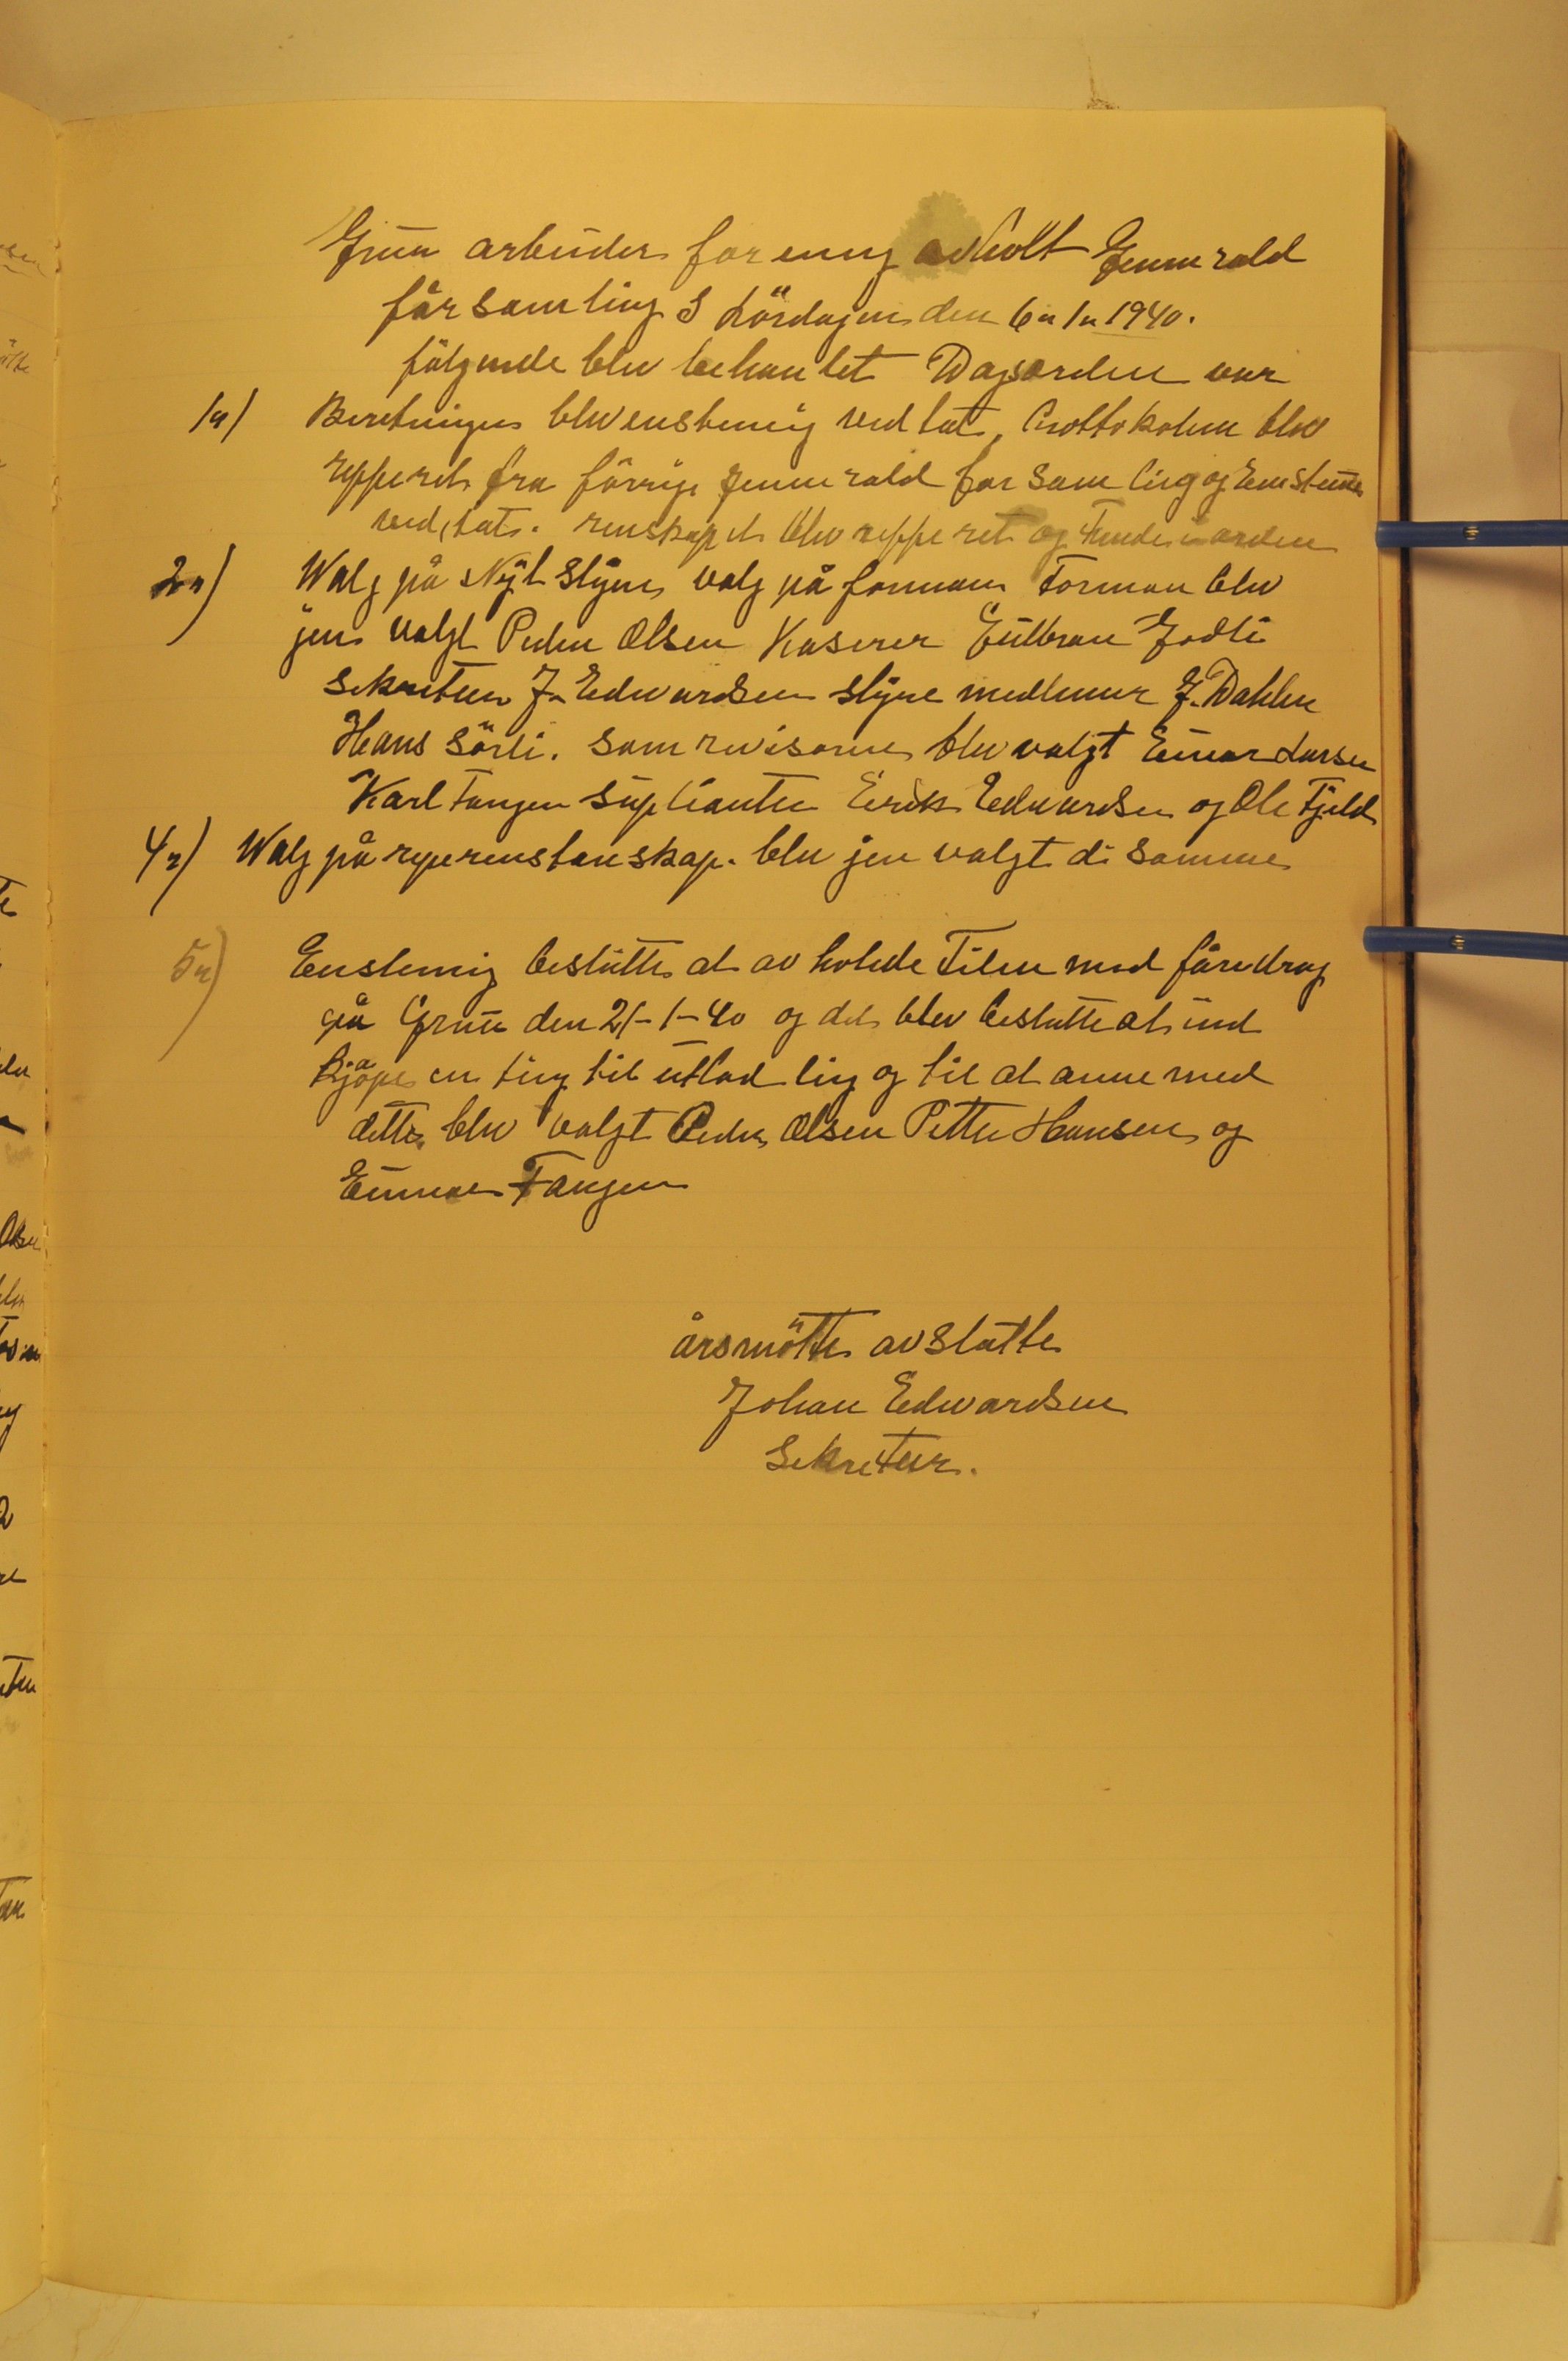 Grua arbeider forening avholt Gennerald
får samling S Lördagen den 6n 1n 1940.
fölgende blev behantet Dagsorden var
1n) Beretningen blev enstemig ved tat, Prottokolen blev
repperet fra förrige jennerald for samling og Enstemi
ved, tat. renskapet blev repperet og Funde i orden
2n) Walg på Nyt Styre, valg på forman Forman blev
jen valgt Peder Olsen Kaserer Gulbran Jodli
Sekretær J. Edwardsen styre medlemer J. Dahlen
Hans Sörli. som revisorer blev valgt Einar Larsen
Karl Tangen supleanter Eirik Edwardsen og Ole Fjeld
4n) Walg på representanskap. blev jen valgt di samme
5n) Enstemig beslutte at av holde Film med foredrag
på Grua den 21-1-40 og det blev beslutte at ind
kjöpe en ting til utlod ling og til at anne med
dette blev valgt Peder Olsen Petter Hansen og
Einnar Tangen
årsmötte avslutte
Johan Edwardsen
Sekretær.